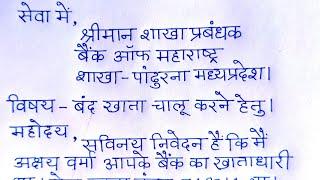 सेवा में,
श्रीमान शाखा प्रबंधक
बैंक ऑफ महाराष्ट्र
शाखा-पांढुरना मध्यप्रदेश।
विषय - बंद खाता चालू करने हेतु।
महोदय,
सविनय निवेदन हैं कि मैं
अक्षय वर्मा आपके बैंक का खाताधारी